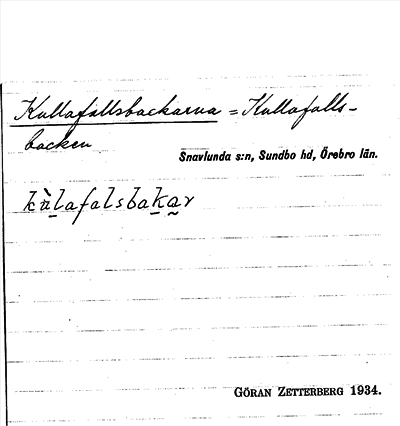 Kullafallsbackarna = Kullafalls-
backen
Snavlunda s:n, Sundbo hd, Örebro län.
kùlafalsbakar
GÖRAN ZETTERBERG 1934.